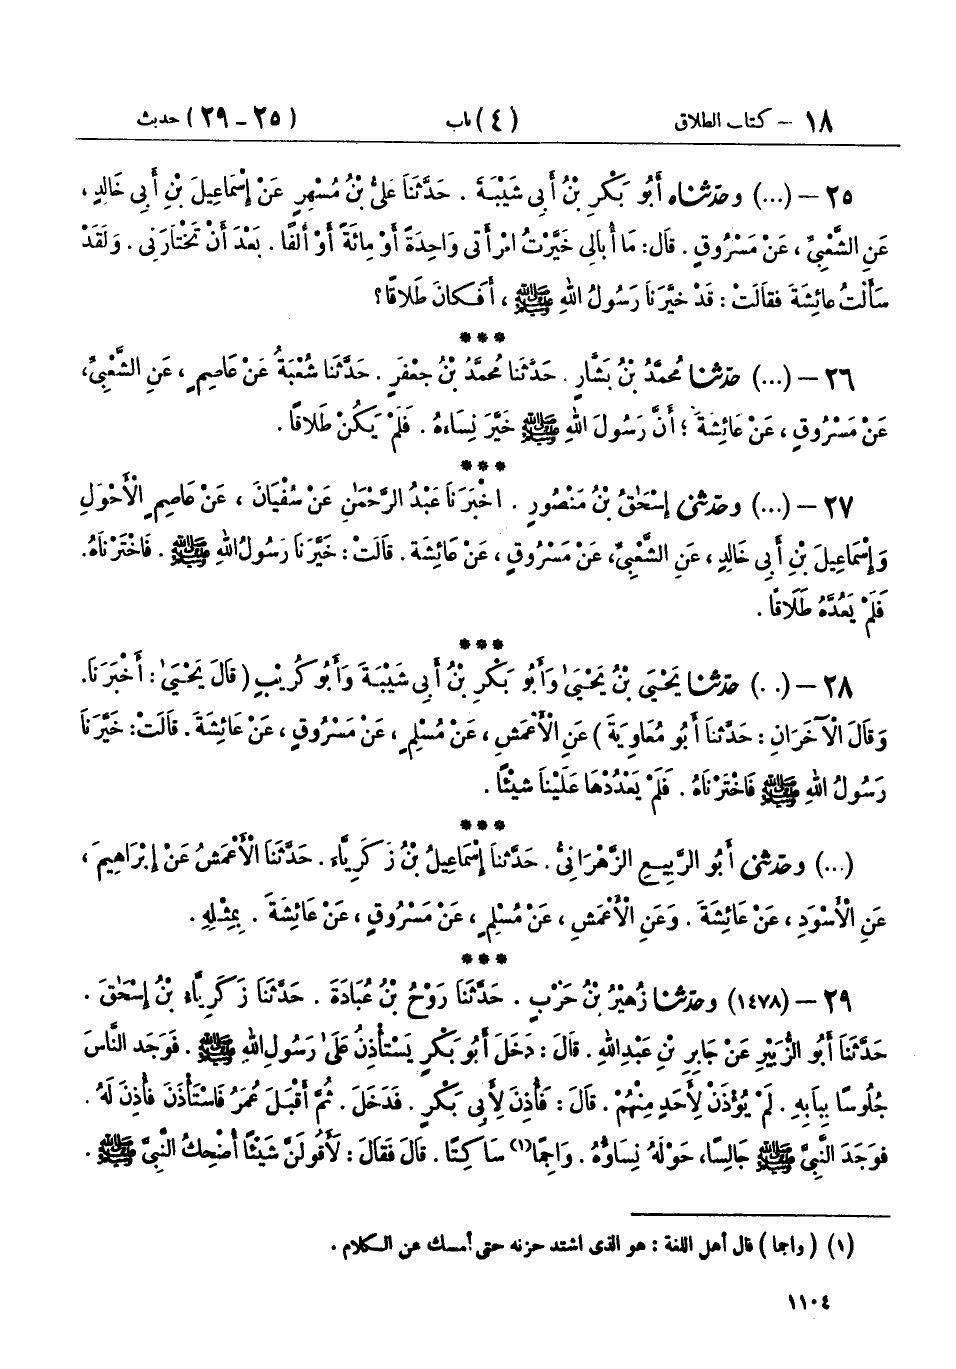 ١٨ – كتاب الطلاق (٤) باب (٢٥ – ٢٩) حديث
٢٥ – (...) وحَدَّثَنَاه أَبُو بَكْرِ بْنُ أَبِي شَيْبَةَ . حَدَّثَنَا عَلِيُّ بْنُ مُسْهِرٍ عَنْ إِسْمَاعِيلَ بْنِ أَبِي خَالِدٍ ،
عَنِ الشَّعْبِيِّ ، عَنْ مَسْرُوقٍ . قَالَ: مَا أُبَالِي خَيَّرْتُ امْرَأَتِي وَاحِدَةً أَوْ مِائَةً أَوْ أَلْفًا . بَعْدَ أَنْ تَخْتَارَنِي . وَلَقَدْ
سَأَلْتُ عَائِشَةَ فقَالَتْ : قَدْ خَيَّرَنَا رَسُولُ اللهِ ﷺ ، أَفَكَانَ طَلَاقًا ؟
***
٢٦ – (...) حَدَّثَنَا مُحَمَّدُ بْنُ بَشَّارٍ . حَدَّثَنَا مُحَمَّدُ بْنُ جَعْفَرٍ . حَدَّثَنَا شُعْبَةُ عَنْ عَاصِمٍ ، عَنِ الشَّعْبِيِّ،
عَنْ مَسْرُوقٍ ، عَنْ عَائِشَةَ ؛ أَنَّ رَسُولَ اللهِ ﷺ خَيَّرَ نِسَاءهُ . فَلَمْ يَكُنْ طَلَاقًا .
***
٢٧ – (...) وحَدَّثَنِي إِسْحَٰقُ بْنُ مَنْصُورٍ . اخْبَرَنَا عَبْدُ الرَّحْمَٰنِ عَنْ سُفْيَانَ ، عَنْ عَاصِمٍ الْأَحْوَلِ
وَإِسْمَاعِيلَ بْنِ أَبِي خَالِدٍ ، عَنِ الشَّعْبِيِّ، عَنْ مَسْرُوقٍ ، عَنْ عَائِشَةَ . قَالَتْ : خَيَّرَنَا رَسُولُ اللهِ ﷺ . فَاخْتَرْنَاهُ.
فَلَمْ يَعُدَّهُ طَلَاقًا .
***
٢٨ – (. .) حَدَّثَنَا يَحْيَىٰ بْنُ يَحْيَىٰ وَأَبُو بَكْرِ بْنُ أَبِي شَيْبَةَ وَأَبُو كُرَيْبٍ ( قَالَ يَحْيَىٰ : أَخْبَرَنَا.
وَقَالَ الْآخَرَانِ : حَدَّثَنَا أَبُو مُعَاوِيَةَ ) عَنِ الْأَعْمَشِ ، عَنْ مُسْلِمٍ ، عَنْ مَسْرُوقٍ ، عَنْ عَائِشَةَ . قَالَتْ: خَيَّرَنَا
رَسُولُ اللهِ ﷺ فَاخْتَرْنَاهُ . فَلَمْ يَعْدُدْهَا عَلَيْنَا شَيْئًا .
***
(...) وحَدَّثَنِي أَبُو الرَّبِيعِ الزَّهْرَانِيُّ . حَدَّثَنَا إِسْمَاعِيلُ بْنُ زَكَرِيَّاءَ . حَدَّثَنَا الْأَعْمَشُ عَنْ إِبْرَاهِيمَ ،
عَنِ الْأَسْوَدِ ، عَنْ عَائِشَةَ . وَعَنِ الْأَعْمَشِ ، عَنْ مُسْلِمٍ ، عَنْ مَسْرُوقٍ ، عَنْ عَائِشَةَ . بِمِثْلِهِ .
***
٢٩ – (١٤٧٨) وحَدَّثَنَا زُهَيْرُ بْنُ حَرْبٍ . حَدَّثَنَا رَوْحُ بْنُ عُبَادَةَ . حَدَّثَنَا زَكَرِيَّاءُ بْنُ إِسْحَٰقَ .
حَدَّثَنَا أَبُو الزُّبَيْرِ عَنْ جَابِرِ بْنِ عَبْدِاللهِ . قَالَ : دَخَلَ أَبُو بَكْرٍ يَسْتَأْذِنُ عَلَىٰ رَسُولِ اللهِ ﷺ . فَوَجَدَ النَّاسَ
جُلُوسًا بِبَابِهِ . لَمْ يُؤْذَنْ لِأَحَدٍ مِنْهُمْ . قَالَ : فَأُذِنَ لِأَبِي بَكْرٍ . فَدَخَلَ . ثُمَّ أَقْبَلَ عُمَرُ فَاسْتَأْذَنَ فَأُذِنَ لَهُ .
فَوَجَدَ النَّبِيَّ ﷺ جَالِسًا، حَوْلَهُ نِسَاؤُهُ . وَاجِمًا(١) سَاكِتًا . قَالَ فَقَالَ : لَأَقُولَنَّ شَيْئًا أُضْحِكُ النَّبِيَّ ﷺ .
(١) ( واجما ) قال أهل اللغة : هو الذى اشتد حزنه حتى أمسك عن الكلام .
١١٠٤